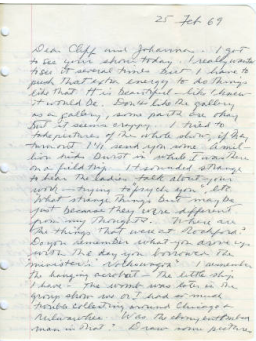 25 Feb 69
Dear Cliff and Johanna. I got
to see your show today. I really wanted
to see it several times but I have to
push that extra energy to do things
like that. It is beautiful – like I knew
it would be. Don't like the gallery
as a gallery, some parts are okay
but it seems creepy. I tried to
take pictures of the whole show, if they
turn out I'll send you some. A
kids burst in while I was there
on a field trip. It sounded strange
to hear the ladies talk about your
work – trying to psyche you", etc.
What strange things but maybe
just because they are different
from my thoughts. Where are
the things that were at Rockford?
Do you remember what you drove up
with the day you borrowed the
minister's Volkswagon? I remember
the hanging acrobat – the little ship
I have – the womb was later in the
group show we or I had so much
trouble collecting around Chicago &
Milwaukee. Was the ebony
man in that? Draw some picture